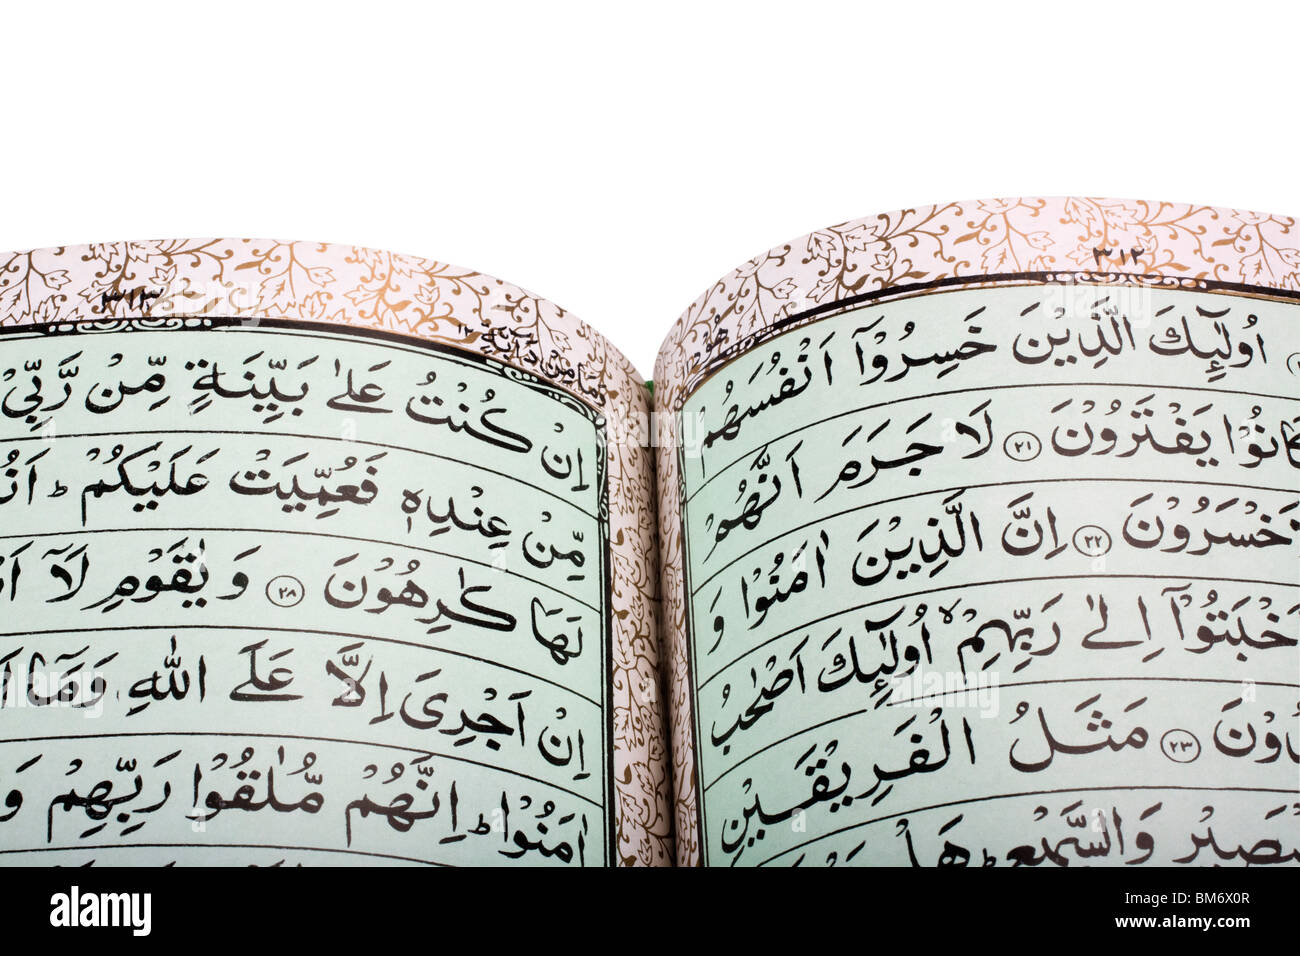 ٣١٢
هود
اُولٰٓئِكَ الَّذِيْنَ خَسِرُوْٓا اَنْفُسَهُمْ
كَانُوْا يَفْتَرُوْنَ ٢١ لَا جَرَمَ اَنَّهُمْ
خْسَرُوْنَ ٢٢ اِنَّ الَّذِيْنَ اٰمَنُوْا وَ
خْبَتُوْٓا اِلٰى رَبِّهِمْ اُولٰٓئِكَ اَصْحٰبُ
دُوْنَ ٢٣ مَثَلُ الْفَرِيْقَيْنِ
لْبَصِيْرِ وَالسَّمِيْعِ هَلْ
٣١٣
وما من دآبة ١٢
اِنْ كُنْتُ عَلٰى بَيِّنَةٍ مِّنْ رَّبِّيْ
مِّنْ عِنْدِهٖ فَعُمِّيَتْ عَلَيْكُمْ ط
لَهَا كٰرِهُوْنَ ٢٨ وَ يٰقَوْمِ لَآ
اِنْ اَجْرِيَ اِلَّا عَلَى اللّٰهِ وَمَآ
اٰمَنُوْا ط اِنَّهُمْ مُّلٰقُوْا رَبِّهِمْ وَ
alamy
Image ID: BM6X0R
www.alamy.com